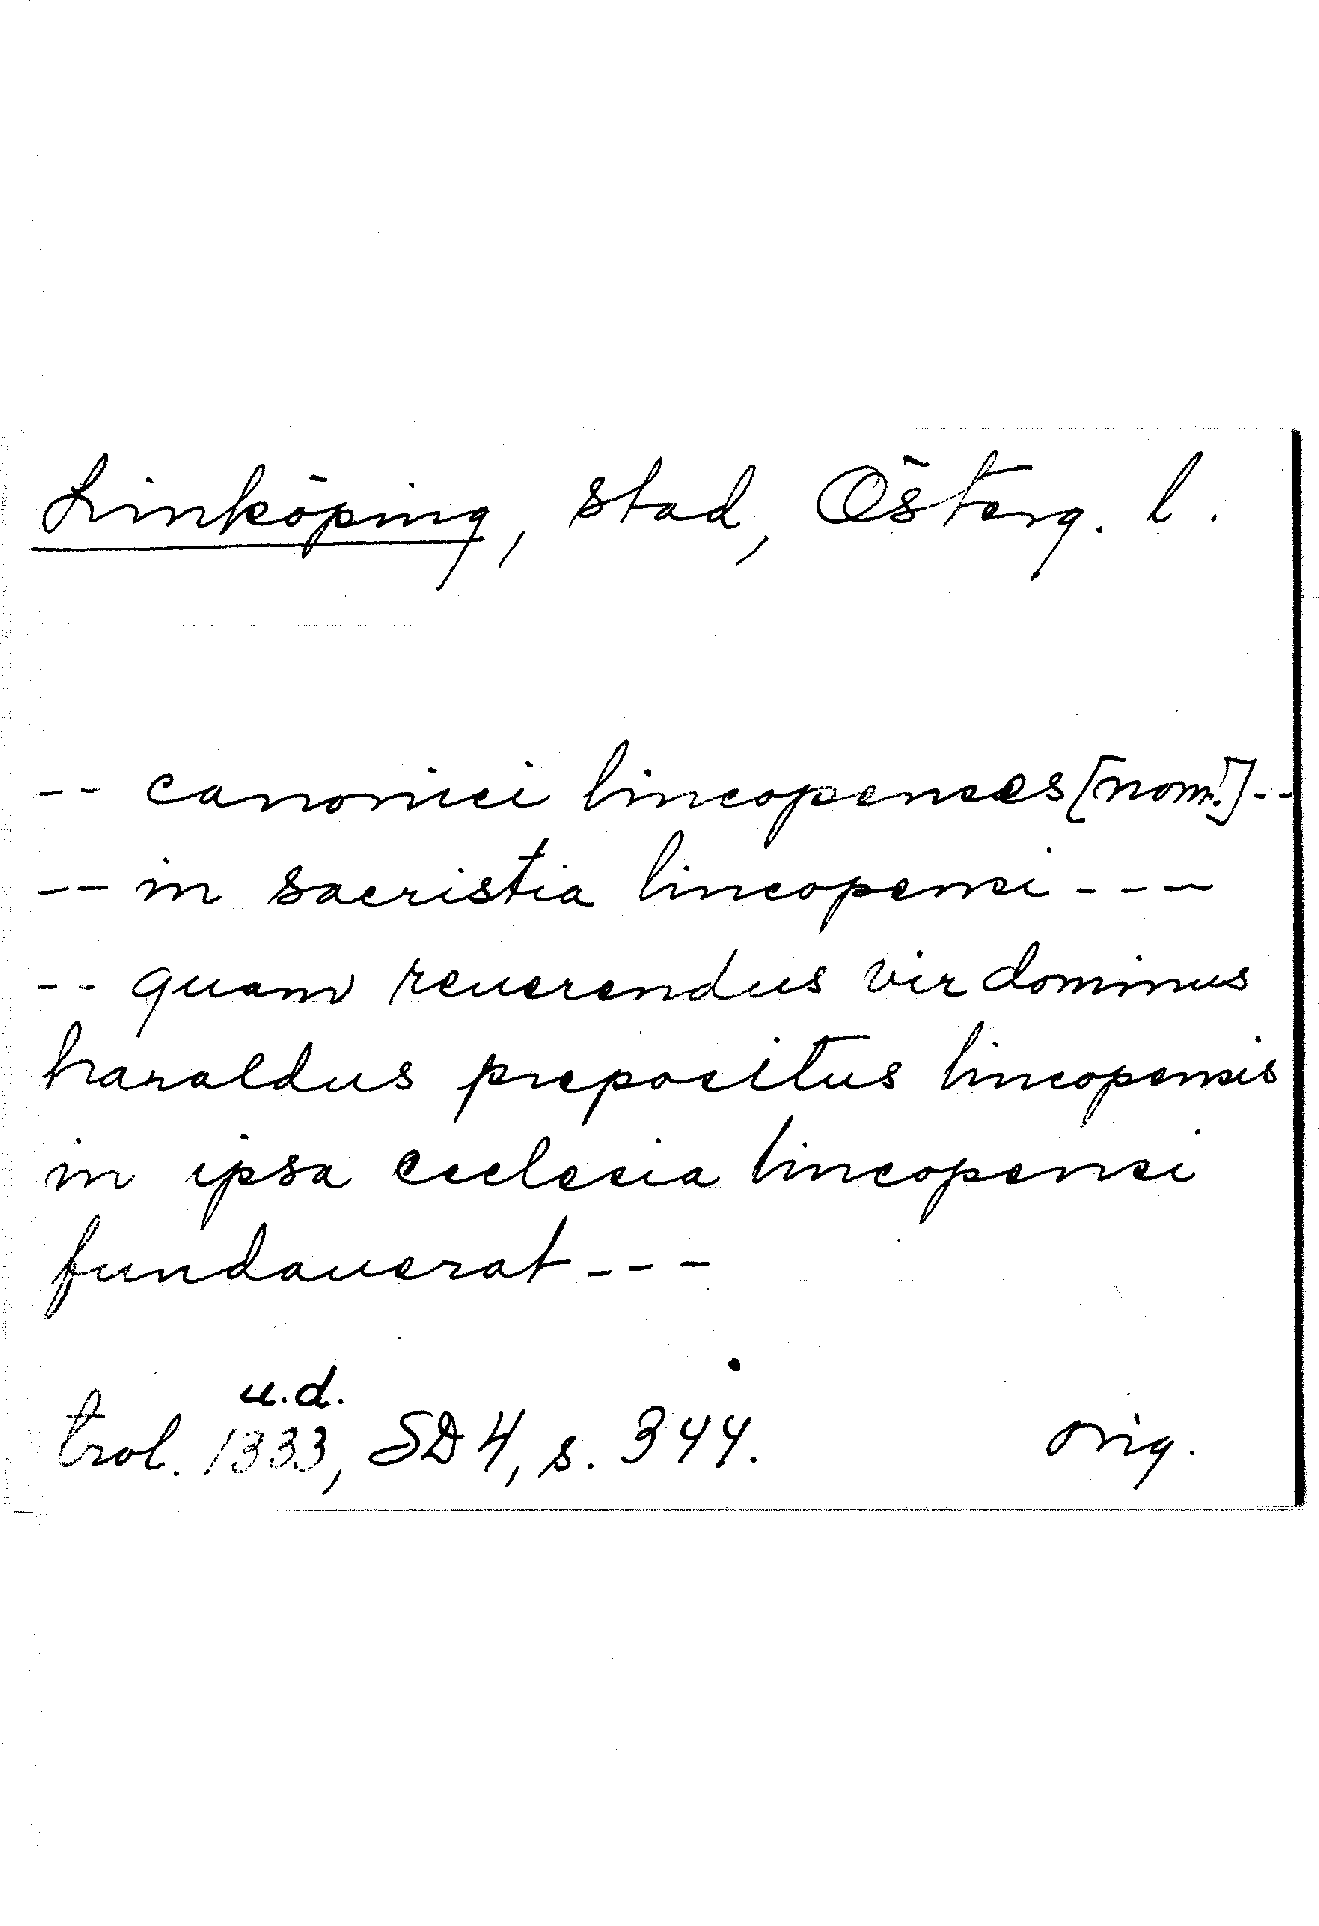 Linköping, stad, Österg. l.
-- canonici lincopenses [nom!] --
-- in sacristia lincopensi ---
-- quam reuerendus vir dominus
haraldus prepositus lincopensis
in ipsa ecclesia lincopensi
fundauerat ---
u.d.
trol. 1333, SD 4, s. 344. orig.